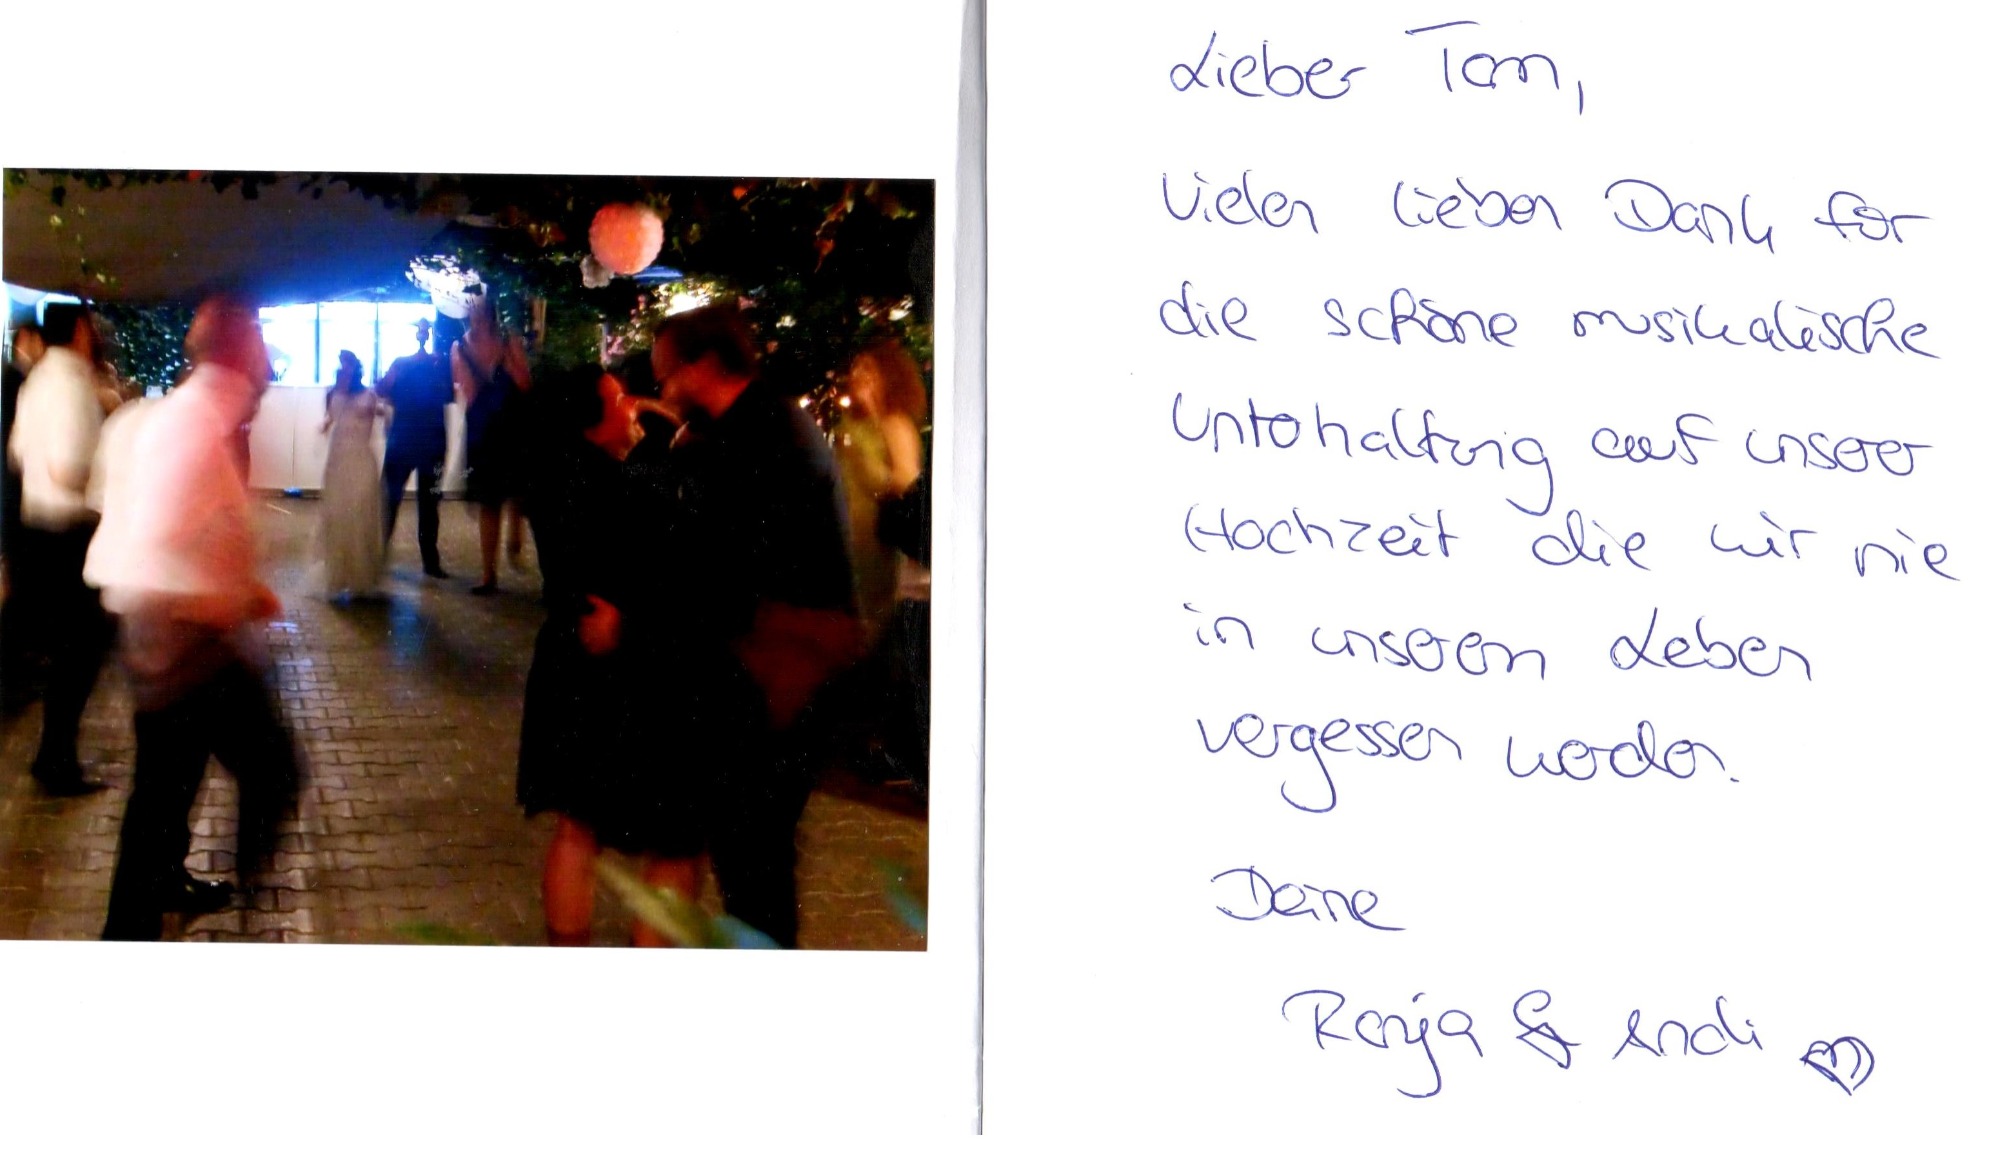 Lieber Tom,
Vielen lieben Dank für
die schöne musikalische
Unterhaltung auf unserer
Hochzeit die wir nie
in unserem Leben
vergessen werden.
Deine
Ronja & Andi